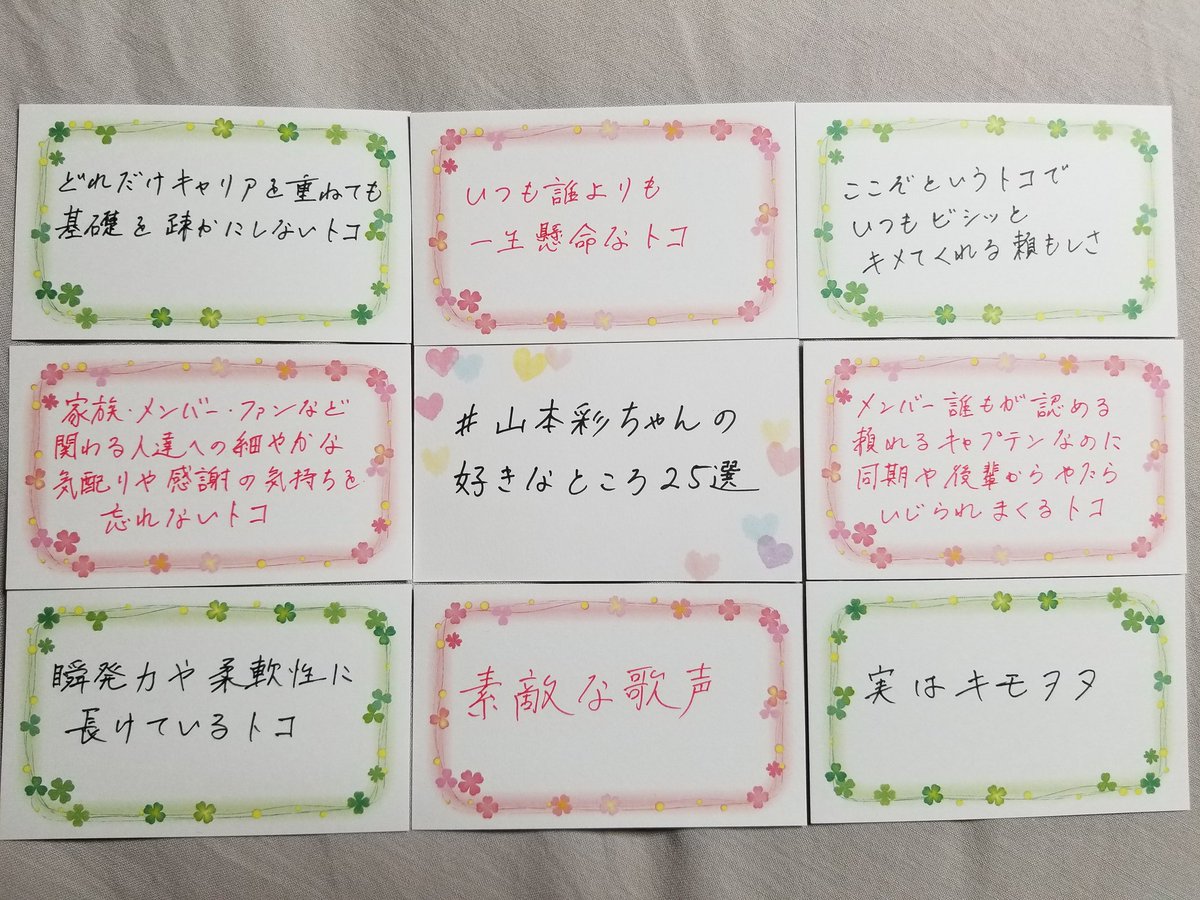 どれだけキャリアを重ねても
基礎を疎かにしないトコ
いつも誰よりも
一生懸命なトコ
ここぞというトコで
いつもビシッと
キメてくれる頼もしさ
家族・メンバー・ファンなど
関わる人達への細やかな
気配りや感謝の気持ちを
忘れないトコ
#山本彩ちゃんの
好きなところ25選
メンバー誰もが認める
頼れるキャプテンなのに
同期や後輩からやたら
いじられまくるトコ
瞬発力や柔軟性に
長けているトコ
素敵な歌声
実はキモヲタ